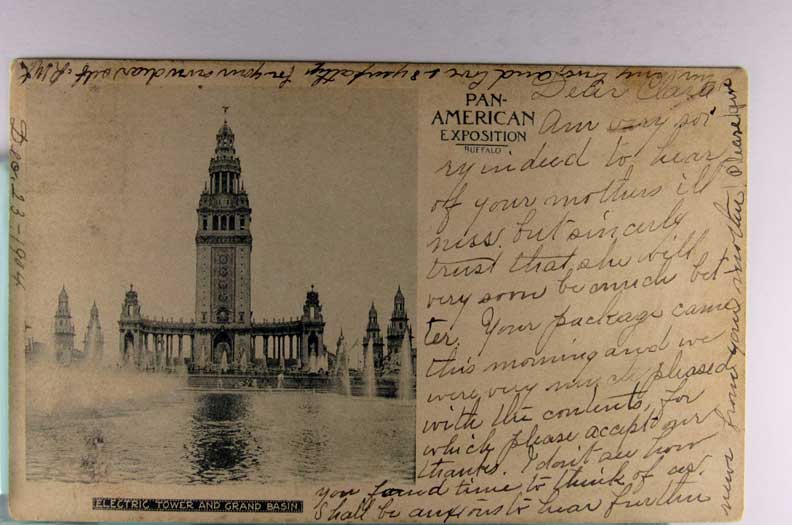 PAN-
AMERICAN
EXPOSITION
BUFFALO
Dear Clara
Am very sor
ry indeed to hear
of your mothers ill
ness, but sincerly
trust that she will
very soon be much bet-
ter. Your package came
this morning and we
were very much pleased
with the contents, for
which please accept our
thanks. I don't see how
you found time to think of us.
Shall be anxious to hear further
news from your mother. Please give
my love and sympathy for your own dear self.
Dec 23-1904
ELECTRIC TOWER AND GRAND BASIN